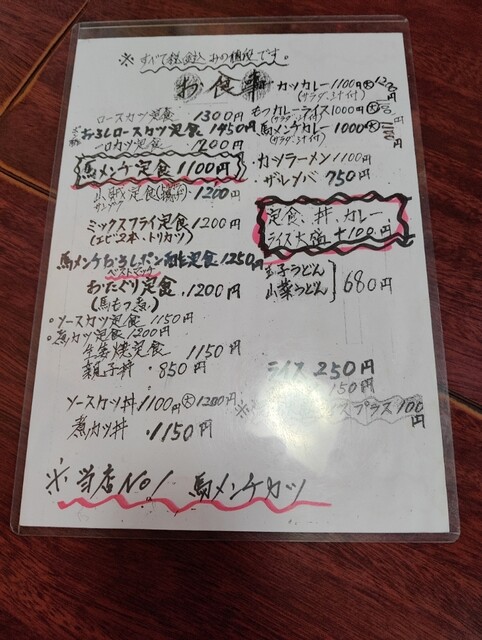 ※ すべて税込みの値段です。
お食事
ロースカツ定食 1300円
おろしロースカツ定食 1450円
一口カツ定食 1200円
馬メンチ定食 1100円
山賊定食 1200
ミックスフライ定食 1200円
(エビ2本、トリカツ)
馬メンチおろしポン酢定食 1250円
ベストマッチ
おたぐり定食 1200円
(馬もつ煮)
ソースカツ定食 1150円
煮カツ定食 1200円
生姜焼定食 1150円
親子丼 850円
ソースカツ丼 1100円 大 1200円
煮カツ丼 1150円
カツカレー 1100円 大 1200円
(サラダ、ミソ汁付)
もつカレーライス 1000円 大
(サラダ、ミソ汁付)
馬メンチカレー 1000 大 1100円
(サラダ、ミソ汁付)
カツラーメン 1100円
ザルソバ 750円
定食、丼、カレー
ライス大盛 +100円
玉子うどん
山菜うどん 680円
ライス 250円
150円
プラス100円
※ 当店No1 馬メンチカツ